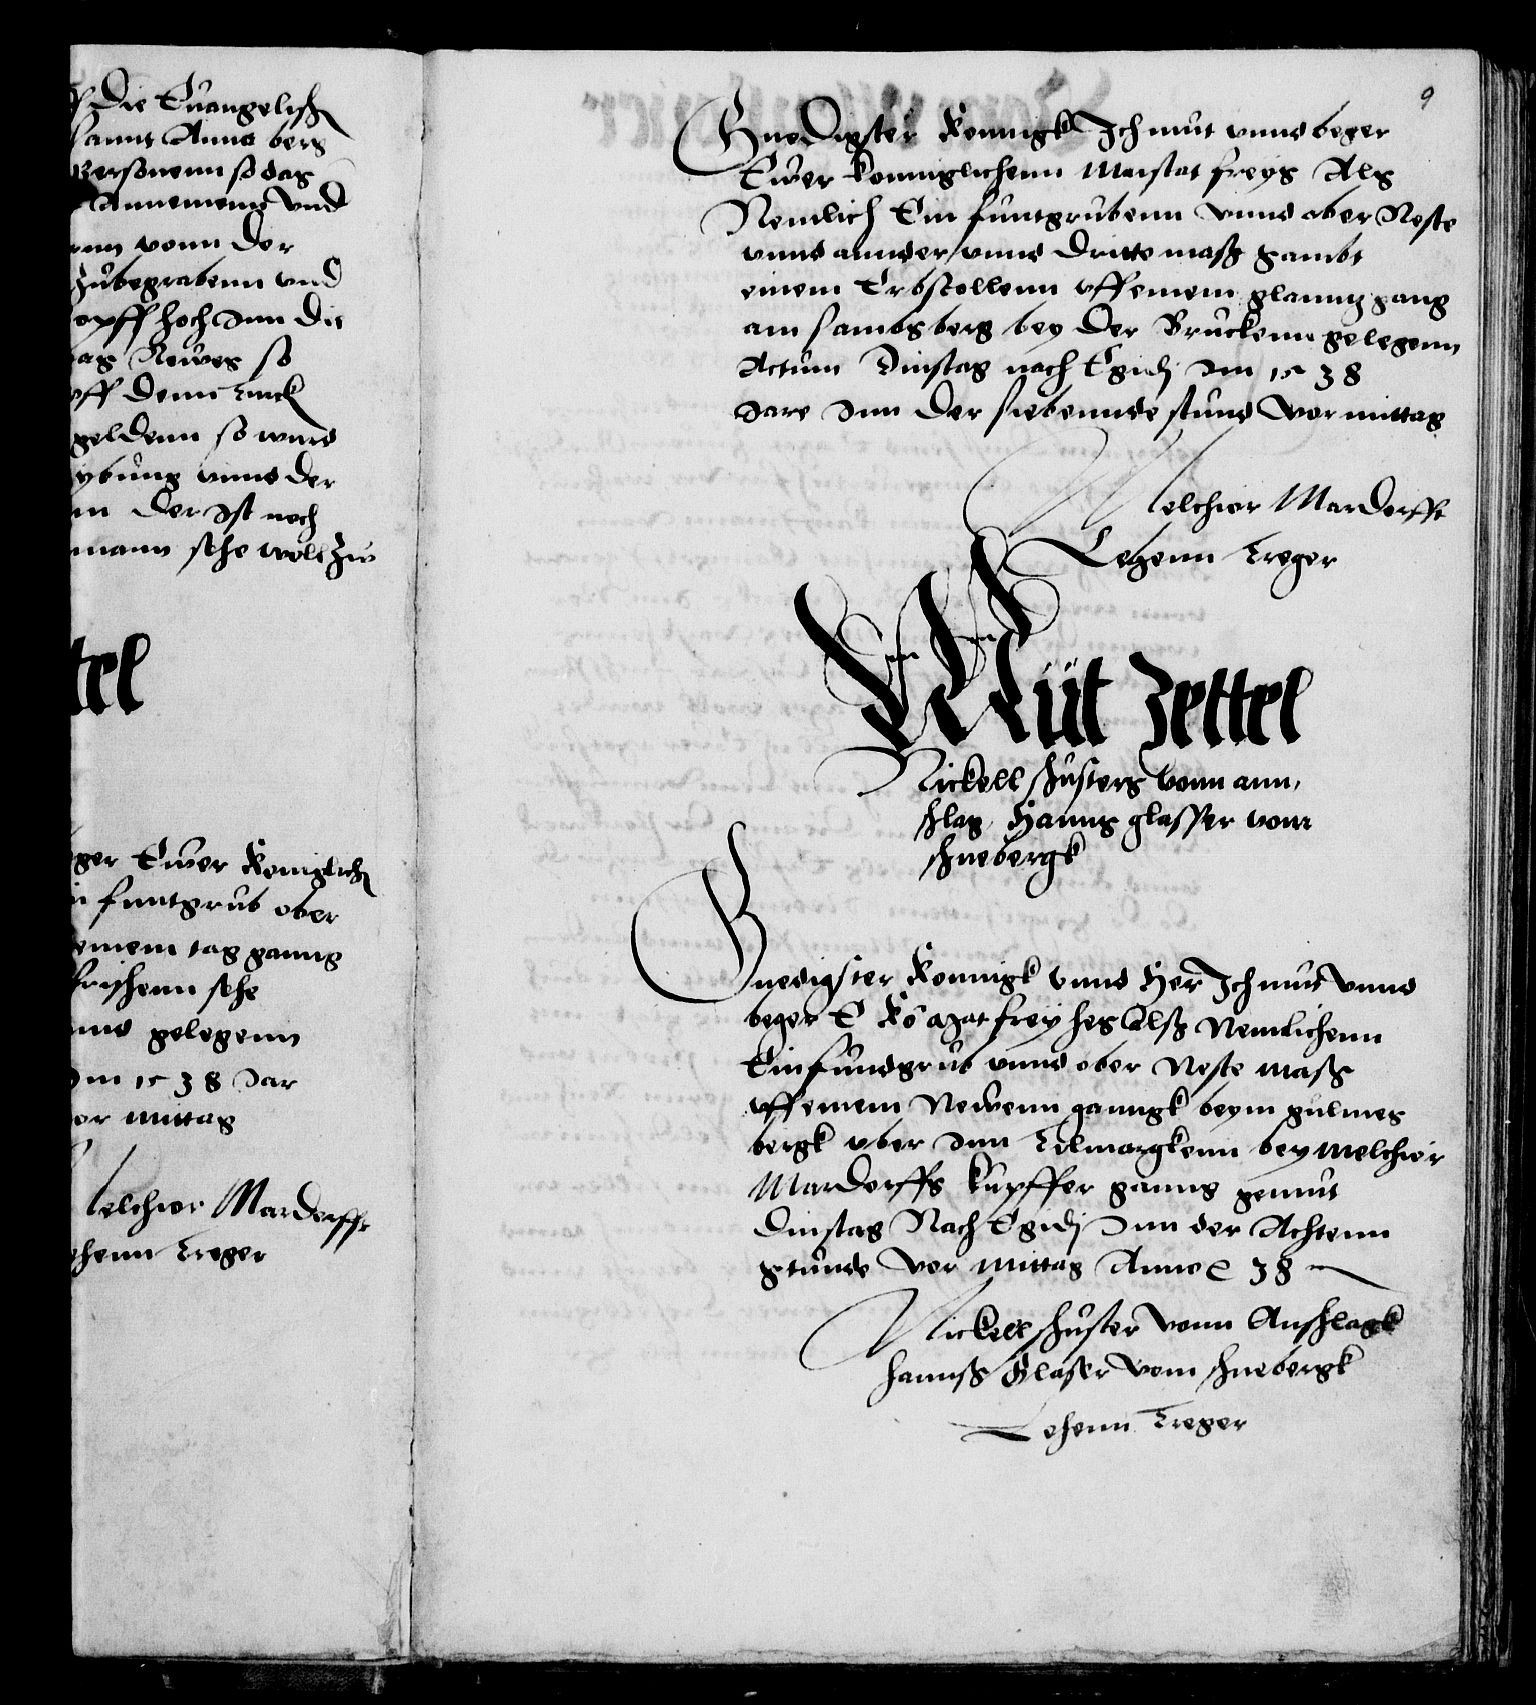 die Euangelisch
sannt Anna berg
Personenn so das
Annemend Vnd
vonn der
Zubegrabenn vnd
opff hoch Inn die
das Newes so
vff denn
geldenn so wurd
ybung vnnd der
der Ist noch
mann sehe woll zu
tel
ger Ewer Koniglich
funtgrub ober
einem tag ganng
frischenn sehe
gelegenn
Im 1538 Jar
or mittag
Melchior Mardorfft
ehenn treger
9
Gnedigster Konnigk Ich mut vnnd beger
Ewer konniglichenn Maistat freys Als
Nemlich Ein funtgrubenn Vnnd ober Neste
vnnd annder vnnd dritte mass sambt
einem Erbstollenn vff einem glanntz gang
am sambsberg bey der Bruckenn gelegenn
Actum Dinstag nach Egidj Im 1538
Jare Inn der siebennde stund Vor mittag
Melchior Mardorfft
Lehenn treger
Müt Zettel
Nickell schusters vonn ann,
schlag, Hanns glasser vom
schnebergk
Gnedigster Konnigk vnnd Her Ich mut Vnnd
beger E Ko Mat freyhes Alss Nemlichenn
Ein fundgrub vnnd ober Neste mass
vff einem Newenn ganngk beym gulmes
bergk vber Inn Tilmargkenn bey Melchior
Mardorffs kupffer ganng gemut
Dinstag Nach Egidj Inn der Achtenn
stunde Vor mittag Anno 38
Nickell schuster Vonn Anschlagk
Hannss Glaser Vom schnebergk
Lehenn treger